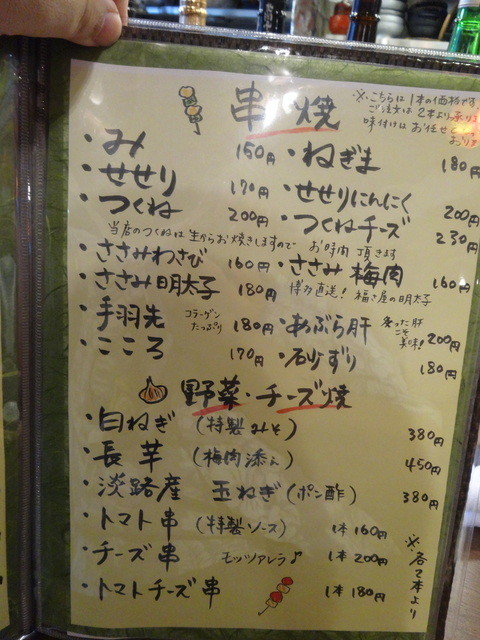 串焼
※こちらは1本の価格です。
ご注文は2本より承り
味付けはお任せ
・み 150円
・ねぎま 180円
・せせり 170円
・せせりにんにく 200円
・つくね 200円
・つくねチーズ 230円
当店のつくねは生からお焼きしますので お時間頂きます
・ささみわさび 160円
・ささみ梅肉 160円
・ささみ明太子 180円
博多直送!福さ屋の明太子
・手羽先 コラーゲンたっぷり 180円
・あぶら肝 200円
・こころ 170円
・砂ずり 180円
野菜・チーズ焼
・白ねぎ (特製みそ) 380円
・長芋 (梅肉添え) 450円
・淡路産 玉ねぎ(ポン酢) 380円
・トマト串 (特製ソース) 1本160円
・チーズ串 モッツァレラ♪ 1本200円
・トマトチーズ串 1本180円
※各2本より